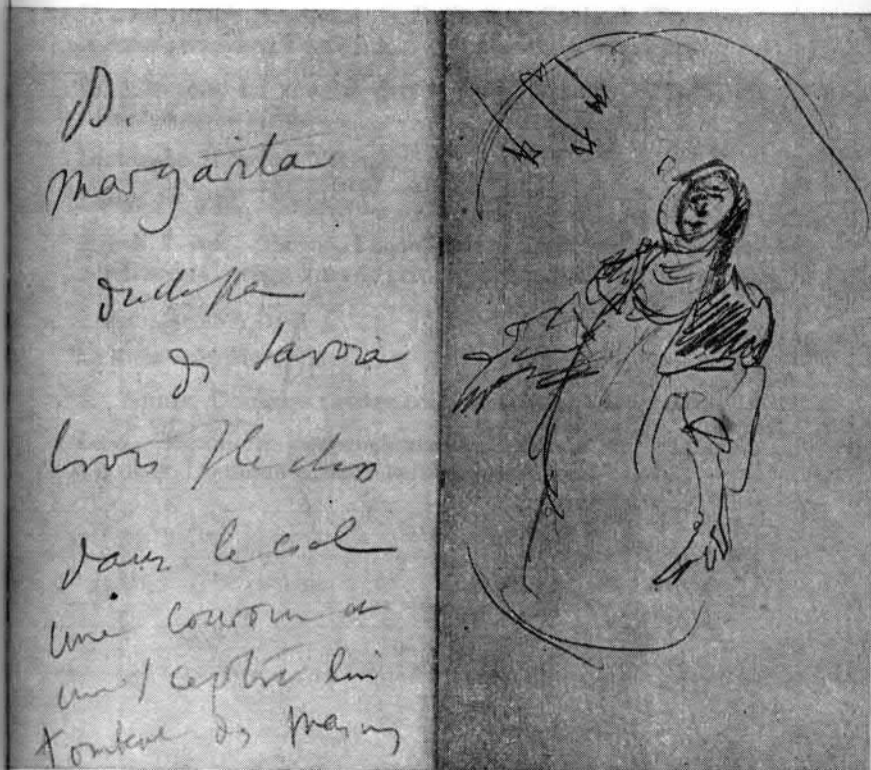 B.
Margarita
duchessa
di Savoia
trois flèches
dans le ciel
une couronne et
un sceptre lui
tombent des mains